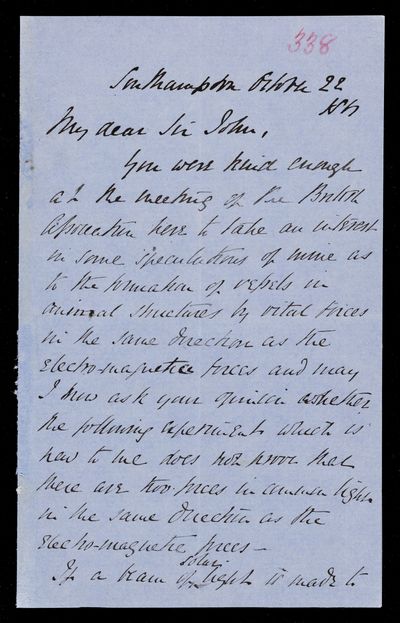 338
Southampton October 22
My dear Sir John,
You were kind enough
at the meeting of the British
Association here to take an interest
in some speculations of mine as
to the formation of vessels in
animal structures by vital forces
in the same direction as the
electro-magnetic forces and may
I now ask your opinion whether
the following experiment which is
new to me does not prove that
there are two forces in common light
in the same direction as the
electro-magnetic forces -
If a beam of solar light is made to